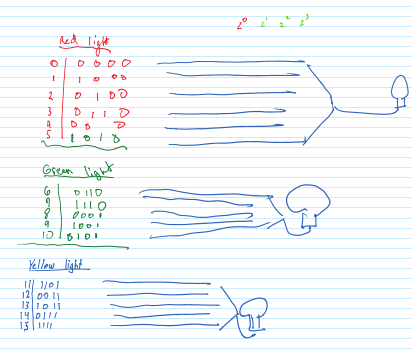 2⁰ 2¹ 2² 2³
Red light
0 0 0 0 0
1 1 0 0 0
2 0 1 0 0
3 0 1 1 0
4 0 0 0
5 1 0 1 0
Green light
6 0110
1110
8 0001
9 1001
10 0101
Yellow light
11 1101
12 0011
13 1011
14 0111
15 1111